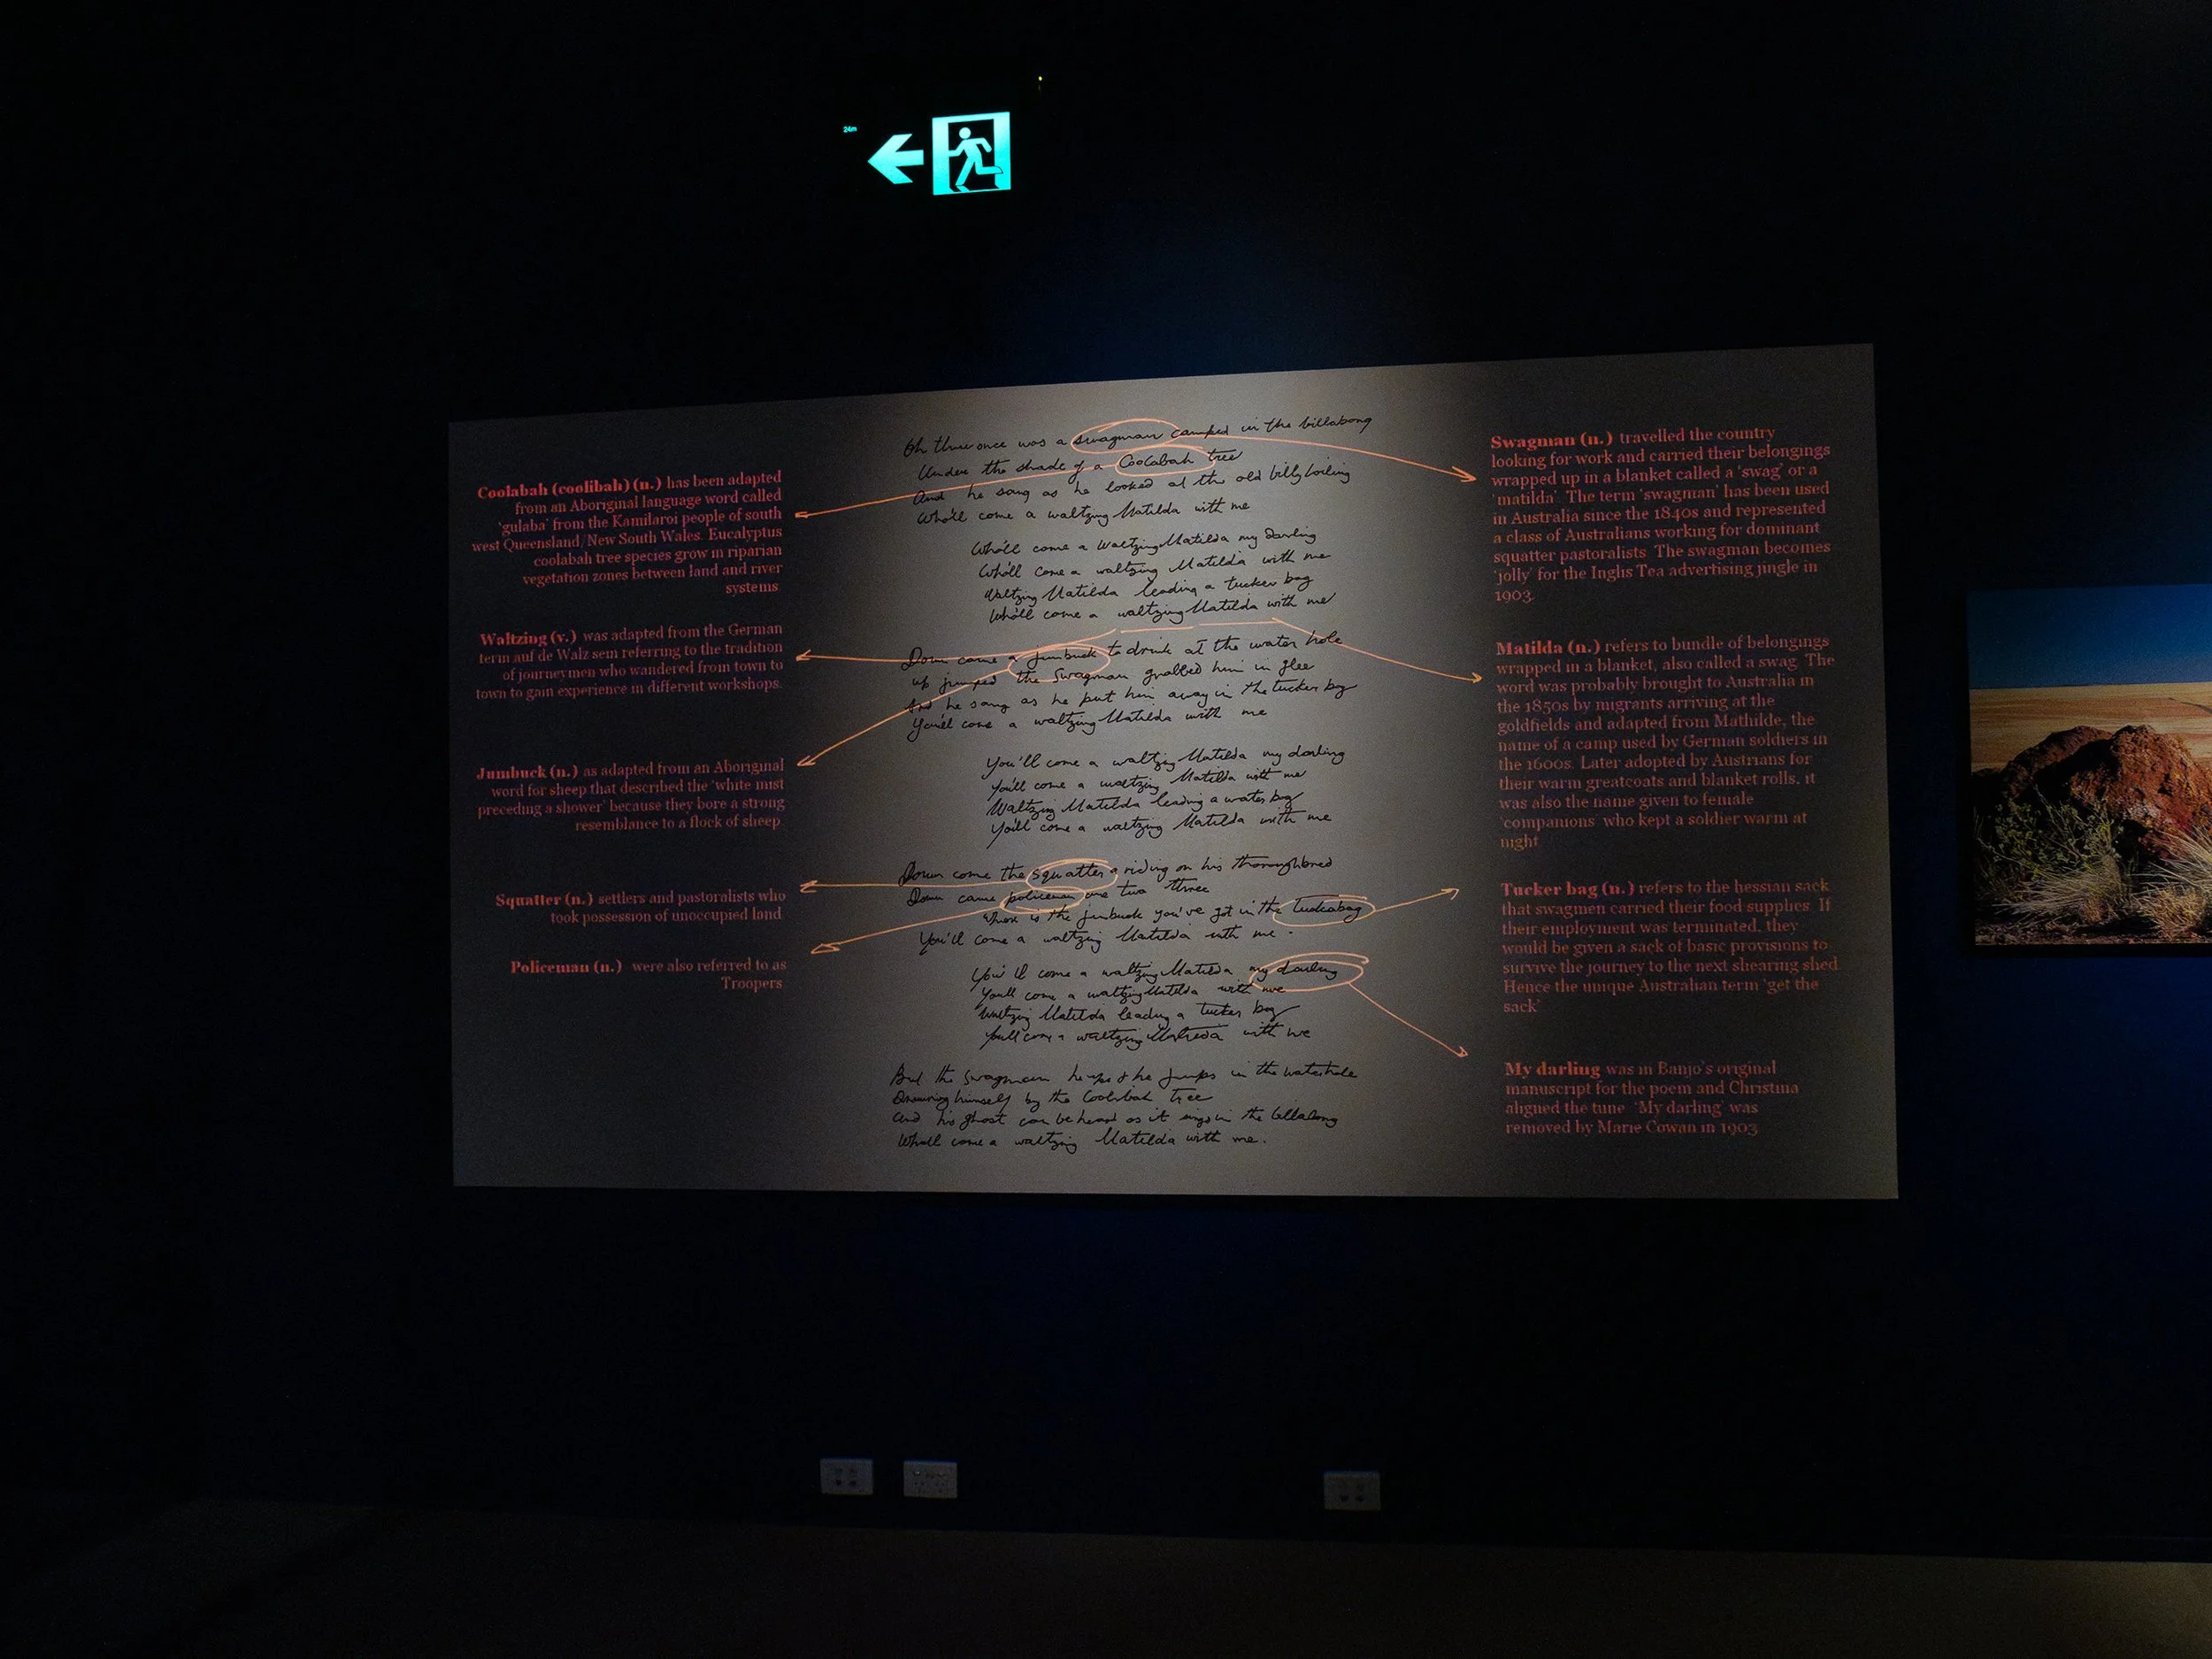 24m
Coolabah (coolibah) (n.) has been adapted
from an Aboriginal language word called
'gulaba' from the Kamilaroi people of south
west Queensland/New South Wales. Eucalyptus
coolabah tree species grow in riparian
vegetation zones between land and river
systems
Waltzing (v.) was adapted from the German
term auf de Walz sein referring to the tradition
of journeymen who wandered from town to
town to gain experience in different workshops.
Jumbuck (n.) as adapted from an Aboriginal
word for sheep that described the 'white mist
preceding a shower' because they bore a strong
resemblance to a flock of sheep
Squatter (n.) settlers and pastoralists who
took possession of unoccupied land
Policeman (n.) were also referred to as
Troopers
Oh there once was a swagman camped in the billabong
Under the shade of a Coolabah tree
And he sang as he looked at the old billy boiling
Who'll come a waltzing Matilda with me
Who'll come a Waltzing Matilda my darling
Who'll come a waltzing Matilda with me
Waltzing Matilda leading a tucker bag
Who'll come a waltzing Matilda with me
Down came a jumbuck to drink at the water hole
up jumped the Swagman grabbed him in glee
And he sang as he put him away in the tucker bag
You'll come a waltzing Matilda with me
You'll come a waltzing Matilda my darling
You'll come a waltzing Matilda with me
Waltzing Matilda leading a water bag
You'll come a waltzing Matilda with me
Down come the squatter a riding on his thoroughbred
Down came policeman one two three
Where is the jumbuck you've got in the tuckabag
You'll come a waltzing Matilda with me.
You'll come a waltzing Matilda my darling
You'll come a waltzing Matilda with me
Waltzing Matilda leading a Tucker bag
You'll come a waltzing Matilda with me
But the Swagman he ups & he jumps in the waterhole
Drowning himself by the Coolabah Tree
And his ghost can be heard as it sings in the billabong
Who'll come a waltzing Matilda with me.
Swagman (n.) travelled the country
looking for work and carried their belongings
wrapped up in a blanket called a 'swag' or a
'matilda'. The term 'swagman' has been used
in Australia since the 1840s and represented
a class of Australians working for dominant
squatter pastoralists. The swagman becomes
'jolly' for the Inglis Tea advertising jingle in
1903.
Matilda (n.) refers to bundle of belongings
wrapped in a blanket, also called a swag. The
word was probably brought to Australia in
the 1850s by migrants arriving at the
goldfields and adapted from Mathilde, the
name of a camp used by German soldiers in
the 1600s. Later adopted by Austrians for
their warm greatcoats and blanket rolls, it
was also the name given to female
'companions' who kept a soldier warm at
night
Tucker bag (n.) refers to the hessian sack
that swagmen carried their food supplies. If
their employment was terminated, they
would be given a sack of basic provisions to
survive the journey to the next shearing shed.
Hence the unique Australian term 'get the
sack'
My darling was in Banjo's original
manuscript for the poem and Christina
aligned the tune. 'My darling' was
removed by Marie Cowan in 1903